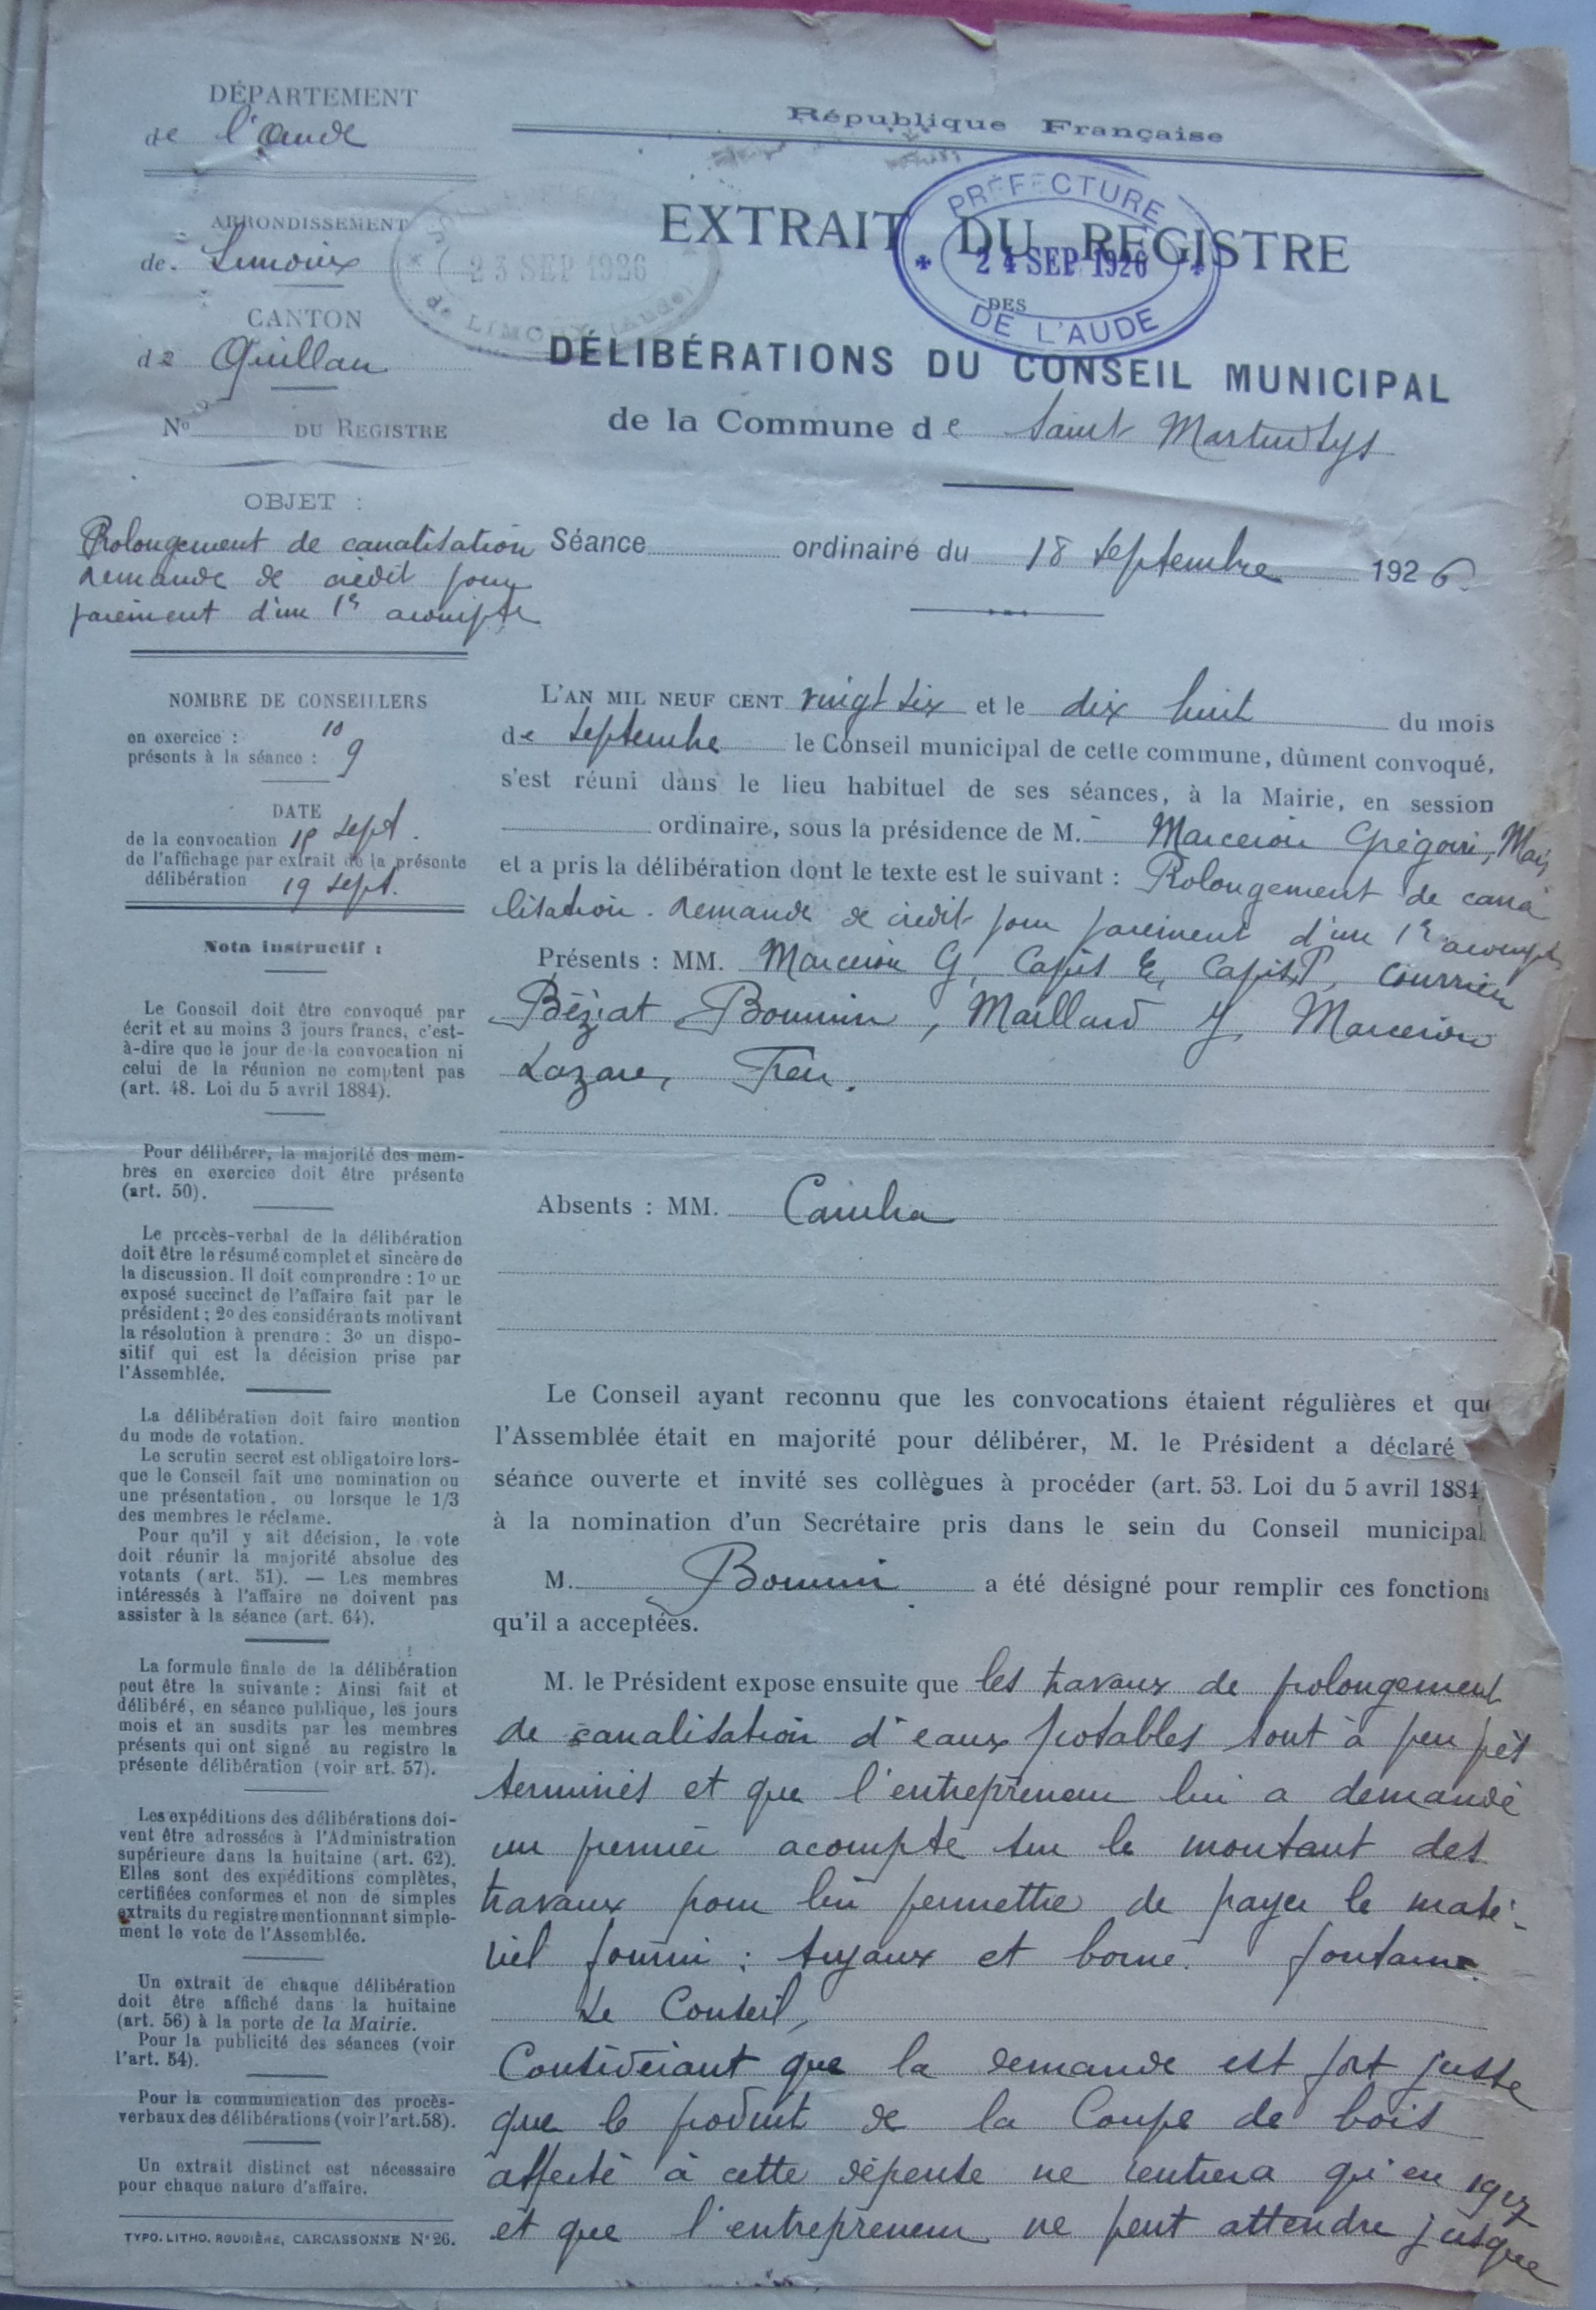 DÉPARTEMENT
de l'Aude
République Française
ARRONDISSEMENT
de Limoux
CANTON
de Quillan
No DU REGISTRE
23 SEP 1926
de LIMOUX (Aude)
PRÉFECTURE
24 SEP 1926
DE L'AUDE
EXTRAIT DU REGISTRE
DES
DÉLIBÉRATIONS DU CONSEIL MUNICIPAL
de la Commune de Saint Martin Lys
OBJET :
Prolongement de canalisation
demande de crédit pour
paiement d'un 1er acompte
Séance ordinaire du 18 septembre 1926
NOMBRE DE CONSEILLERS
en exercice : 10
présents à la séance : 9
DATE
de la convocation 15 sept.
de l'affichage par extrait de la présente
délibération 19 sept.
Nota instructif :
Le Conseil doit être convoqué par
écrit et au moins 3 jours francs, c'est-
à-dire que le jour de la convocation ni
celui de la réunion ne comptent pas
(art. 48. Loi du 5 avril 1884).
Pour délibérer, la majorité des mem-
bres en exercice doit être présente
(art. 50).
Le procès-verbal de la délibération
doit être le résumé complet et sincère de
la discussion. Il doit comprendre : 1o un
exposé succinct de l'affaire fait par le
président ; 2o des considérants motivant
la résolution à prendre : 3o un dispo-
sitif qui est la décision prise par
l'Assemblée.
La délibération doit faire mention
du mode de votation.
Le scrutin secret est obligatoire lors-
que le Conseil fait une nomination ou
une présentation, ou lorsque le 1/3
des membres le réclame.
Pour qu'il y ait décision, le vote
doit réunir la majorité absolue des
votants (art. 51). — Les membres
intéressés à l'affaire ne doivent pas
assister à la séance (art. 64).
La formule finale de la délibération
peut être la suivante : Ainsi fait et
délibéré, en séance publique, les jours
mois et an susdits par les membres
présents qui ont signé au registre la
présente délibération (voir art. 57).
Les expéditions des délibérations doi-
vent être adressées à l'Administration
supérieure dans la huitaine (art. 62).
Elles sont des expéditions complètes,
certifiées conformes et non de simples
extraits du registre mentionnant simple-
ment le vote de l'Assemblée.
Un extrait de chaque délibération
doit être affiché dans la huitaine
(art. 56) à la porte de la Mairie.
Pour la publicité des séances (voir
l'art. 54).
Pour la communication des procès-
verbaux des délibérations (voir l'art. 58).
Un extrait distinct est nécessaire
pour chaque nature d'affaire.
TYPO. LITHO. ROUDIÈRE, CARCASSONNE No 26.
L'AN MIL NEUF CENT vingt six et le dix huit du mois
de septembre le Conseil municipal de cette commune, dûment convoqué,
s'est réuni dans le lieu habituel de ses séances, à la Mairie, en session
ordinaire, sous la présidence de M. Marceron Grégoire, Maire
et a pris la délibération dont le texte est le suivant : Prolongement de cana
lisation. demande de crédit pour paiement d'un 1er acompte
Présents : MM. Marceron G, Capis E, Capis P, Courrieu
Béziat Bounin, Maillard J, Marceron
Lazare,
Absents : MM.
Le Conseil ayant reconnu que les convocations étaient régulières et que
l'Assemblée était en majorité pour délibérer, M. le Président a déclaré
séance ouverte et invité ses collègues à procéder (art. 53. Loi du 5 avril 1884
à la nomination d'un Secrétaire pris dans le sein du Conseil municipal
M. Bounin a été désigné pour remplir ces fonctions
qu'il a acceptées.
M. le Président expose ensuite que les travaux de prolongement
de canalisation d'eaux potables sont à peu près
terminés et que l'entrepreneur lui a demandé
un premier acompte sur le montant des
travaux pour lui permettre de payer le maté-
riel fourni : tuyaux et borne fontaine
Le Conseil,
Considérant que la demande est fort juste
que le produit de la Coupe de bois
affecté à cette dépense ne rentrera qu'en 1927
et que l'entrepreneur ne peut attendre jusque